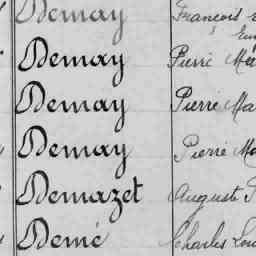 Demay François
Demay Pierre
Demay Pierre
Demay Pierre
Demazet Auguste
Demé Charles